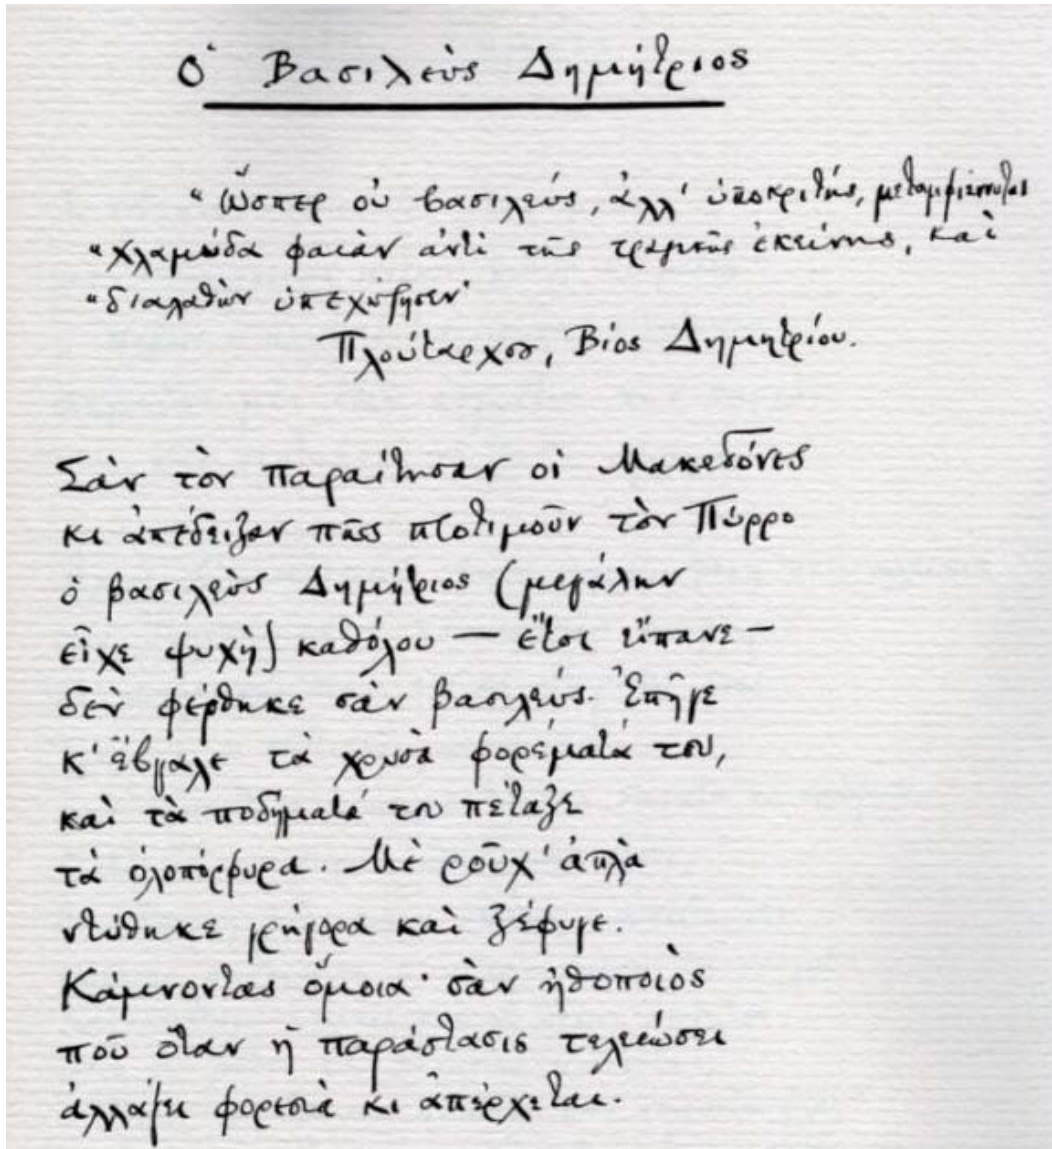 Ὁ Βασιλεὺς Δημήτριος
“Ὥσπερ οὐ βασιλεύς, ἀλλ’ ὑποκριτής, μεταμφιέννυται
“χλαμύδα φαιὰν ἀντὶ τῆς τραγικῆς ἐκείνης, καὶ
“διαλαθὼν ὑπεχώρησεν·
Πλούταρχος, Βίος Δημητρίου.
Σὰν τὸν παραίτησαν οἱ Μακεδόνες
κι ἀπέδειξαν πῶς προτιμοῦν τὸν Πύρρο
ὁ βασιλεὺς Δημήτριος (μεγάλην
εἶχε ψυχὴ) καθόλου — ἔτσι εἴπανε —
δὲν φέρθηκε σὰν βασιλεύς. Ἐπῆγε
κ’ ἔβγαλε τὰ χρυσὰ φορέματά του,
καὶ τὰ ποδήματά του πέταξε
τὰ ὁλοπόρφυρα. Μὲ ροῦχ’ ἁπλὰ
ντύθηκε γρήγορα καὶ ξέφυγε.
Κάμνοντας ὅμοια· σὰν ἠθοποιὸς
ποῦ ὅταν ἡ παράστασις τελειώσει
ἀλλάζει φορεσιὰ κι ἀπέρχεται.